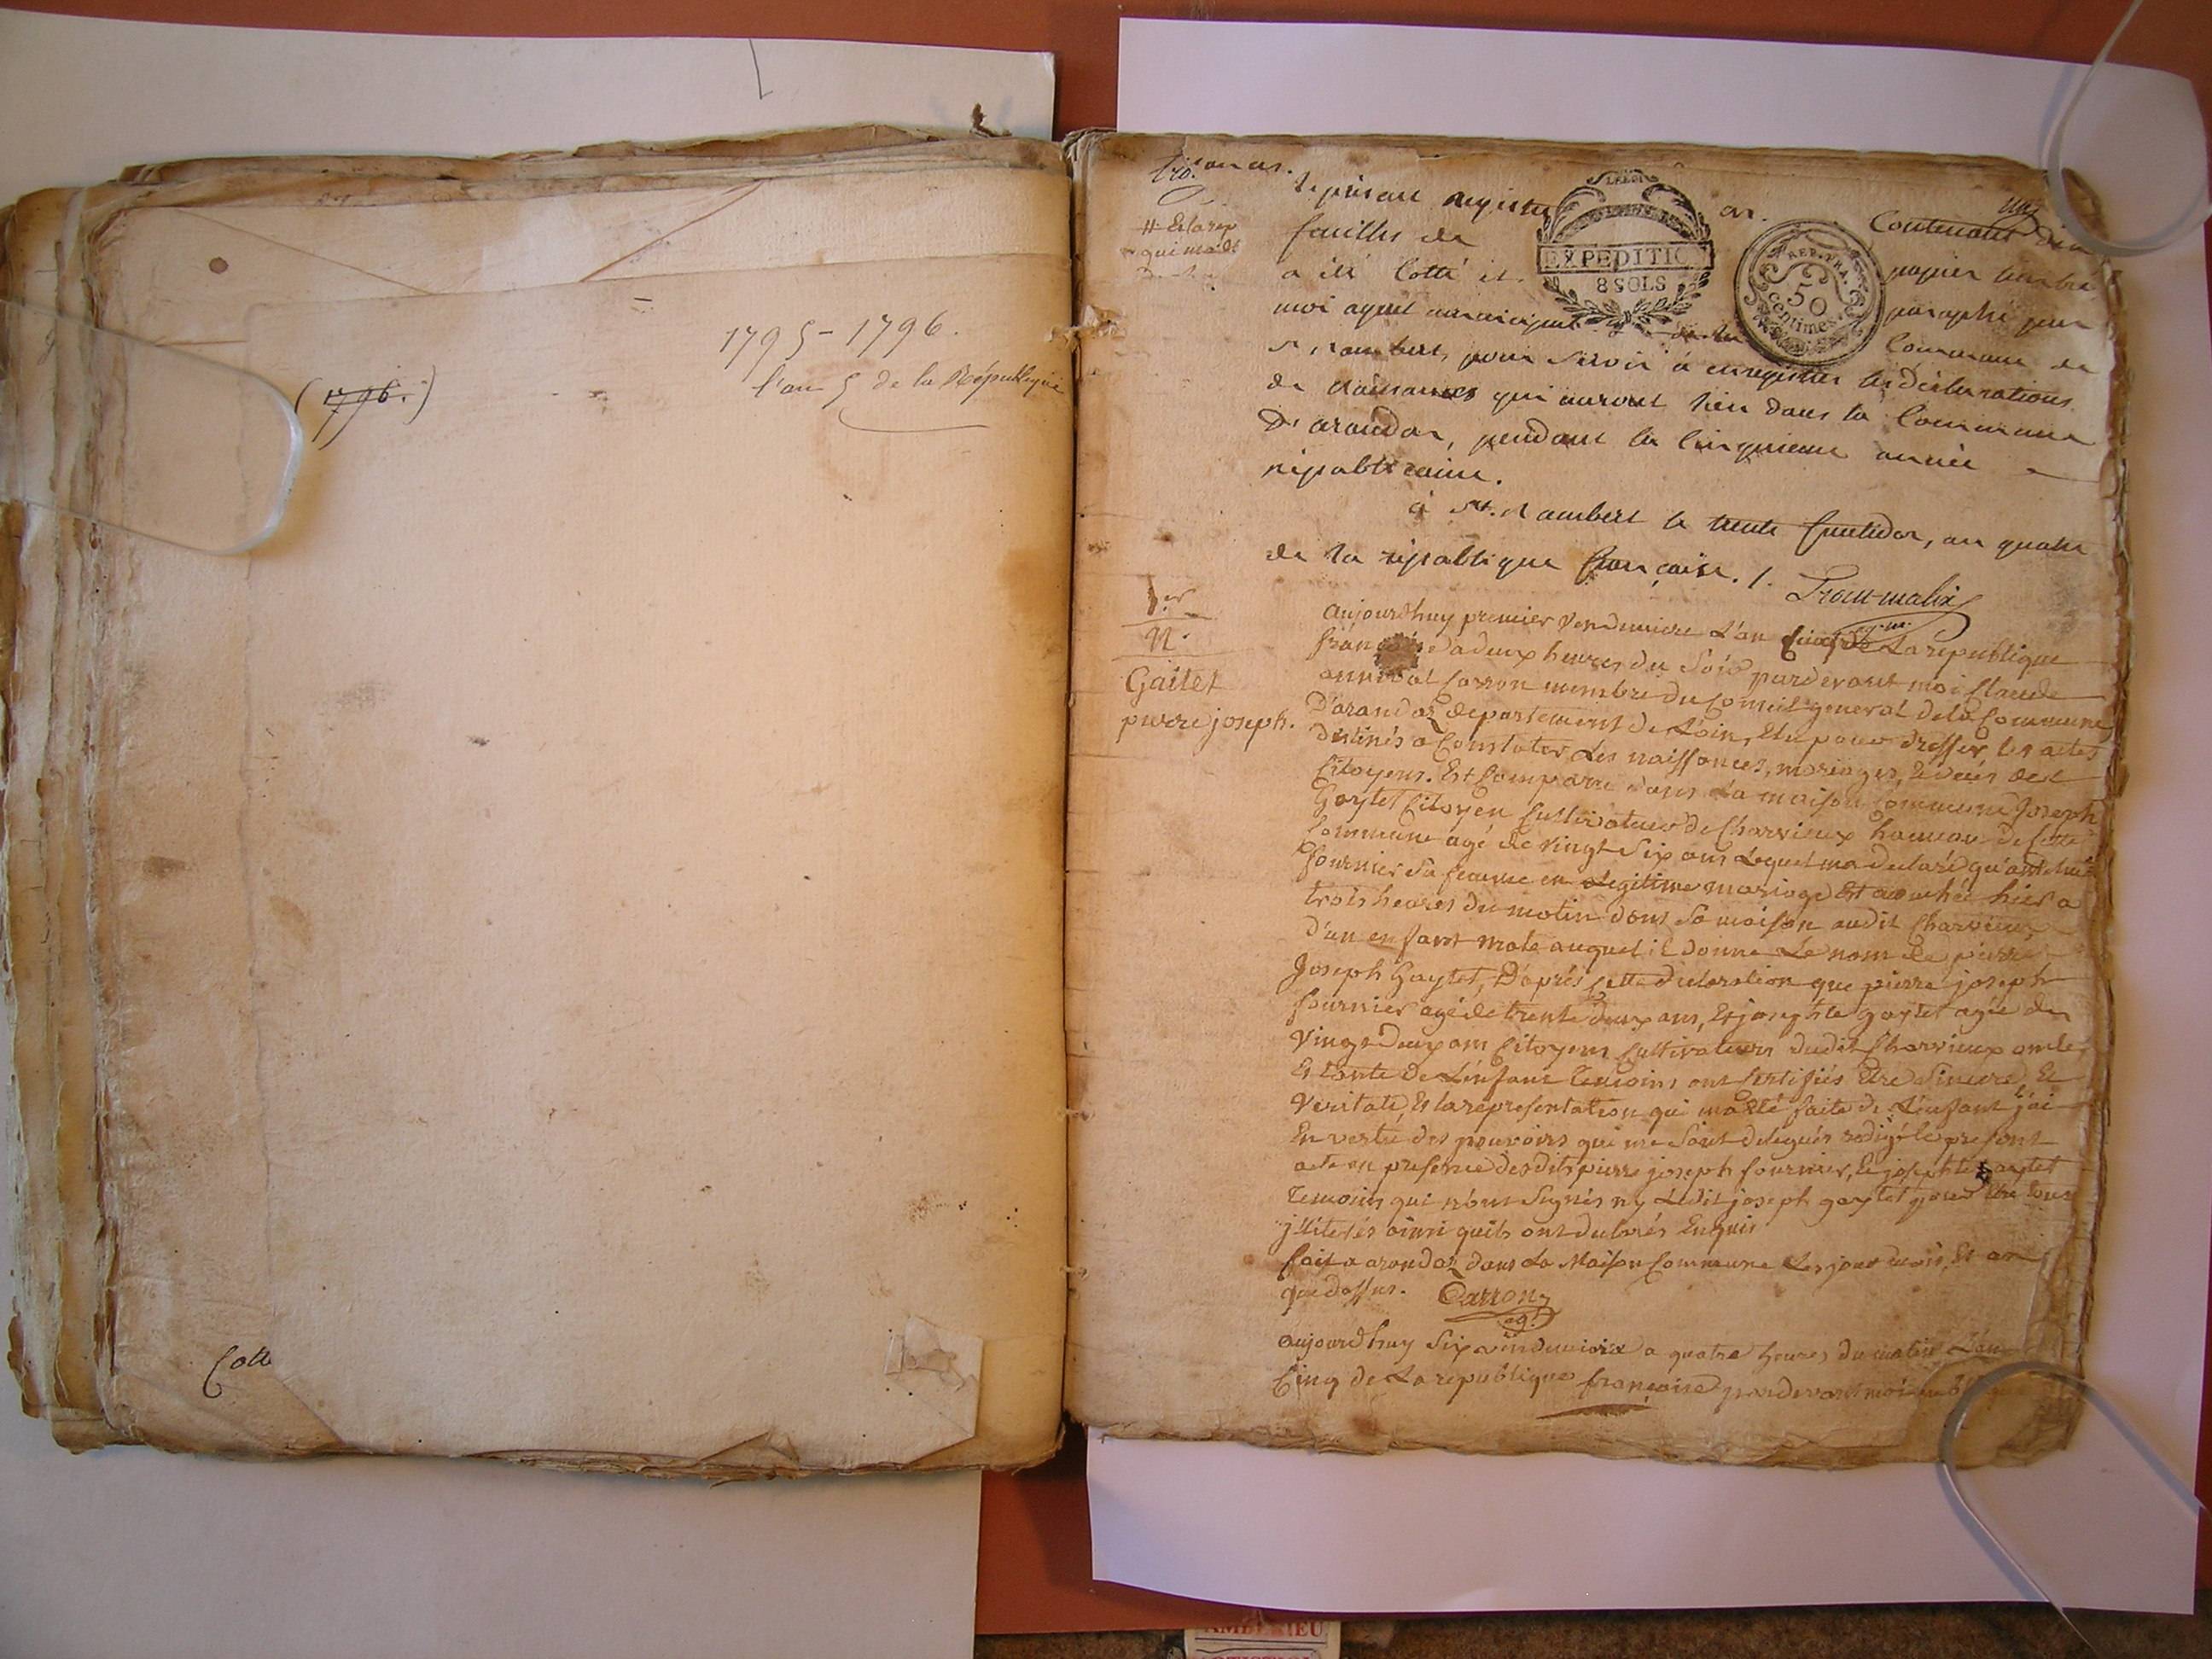 1795 - 1796.
l'an 5 de la République
(1796.)
Cott
# Et la rep
qui ma êté
un
Le présent registre Contenant dix
feuilles de papier timbré
a été Cotté et paraphé par
moi agent municipal de la Commune de
St. rambert, pour servir à enregistrer les déclarations
de naissances qui auront lieu dans la Commune
D'arandas, pendant la Cinquieme année
républicaine.
à St. rambert le trente fructidor, an quatre
de la république française. /.
EXPEDITION
8 SOLS
REP. FRA.
50
centimes
1.er
N.
Gaitet
pierre joseph.
aujourdhuy premier vendemiere L'an Cinq de La republique
françoise a deux heures du Soir pardevant moi Claude
annibal Carron membre du Conseil general de la Commune
D'arandas departement de L'ain, Elu pour dresser les actes
Destinés a Constater Les naissances, mariages, Et décés des
Citoyens. Est Comparu dans La maison Commune Joseph
Gaytet Citoyen Cultivateur de Charvieux hameau de Cette
Commune agé de vingt Six ans Lequel ma declaré
fournier Sa femme en Legitime mariage Est accouchée hier a
trois heures du matin dans Sa maison audit Charvieux
D'un enfant male auquel il donne Le nom de pierre
Joseph Gaytet, D'aprés Cette declaration que pierre joseph
fournier agé de trente deux ans, Et josephte gaytet agée de
Vingt Deux ans Citoyens Cultivateurs dudit Charvieux oncle
Et tante de L'enfant Temoins ont Certifiés Etre Sincere, Et
Veritable, Et la representation qui ma êté faite de L'enfant j'ai
En vertu des pouvoirs qui me Sont delegués redigé le present
acte en presence desdits pierre joseph fournier, Et josephte gaytet
Temoins qui n'ont Signés ny Ledit joseph gaytet pour Etre tous
jlliterés ainsi quils ont declarés Enquis
fait a arandas dans La Maison Commune Les jour mois, Et an
que dessus. Carron
aujourdhuy Six vendemiere a quatre heures du matin L'an
Cinq de La republique françoise pardevant moi